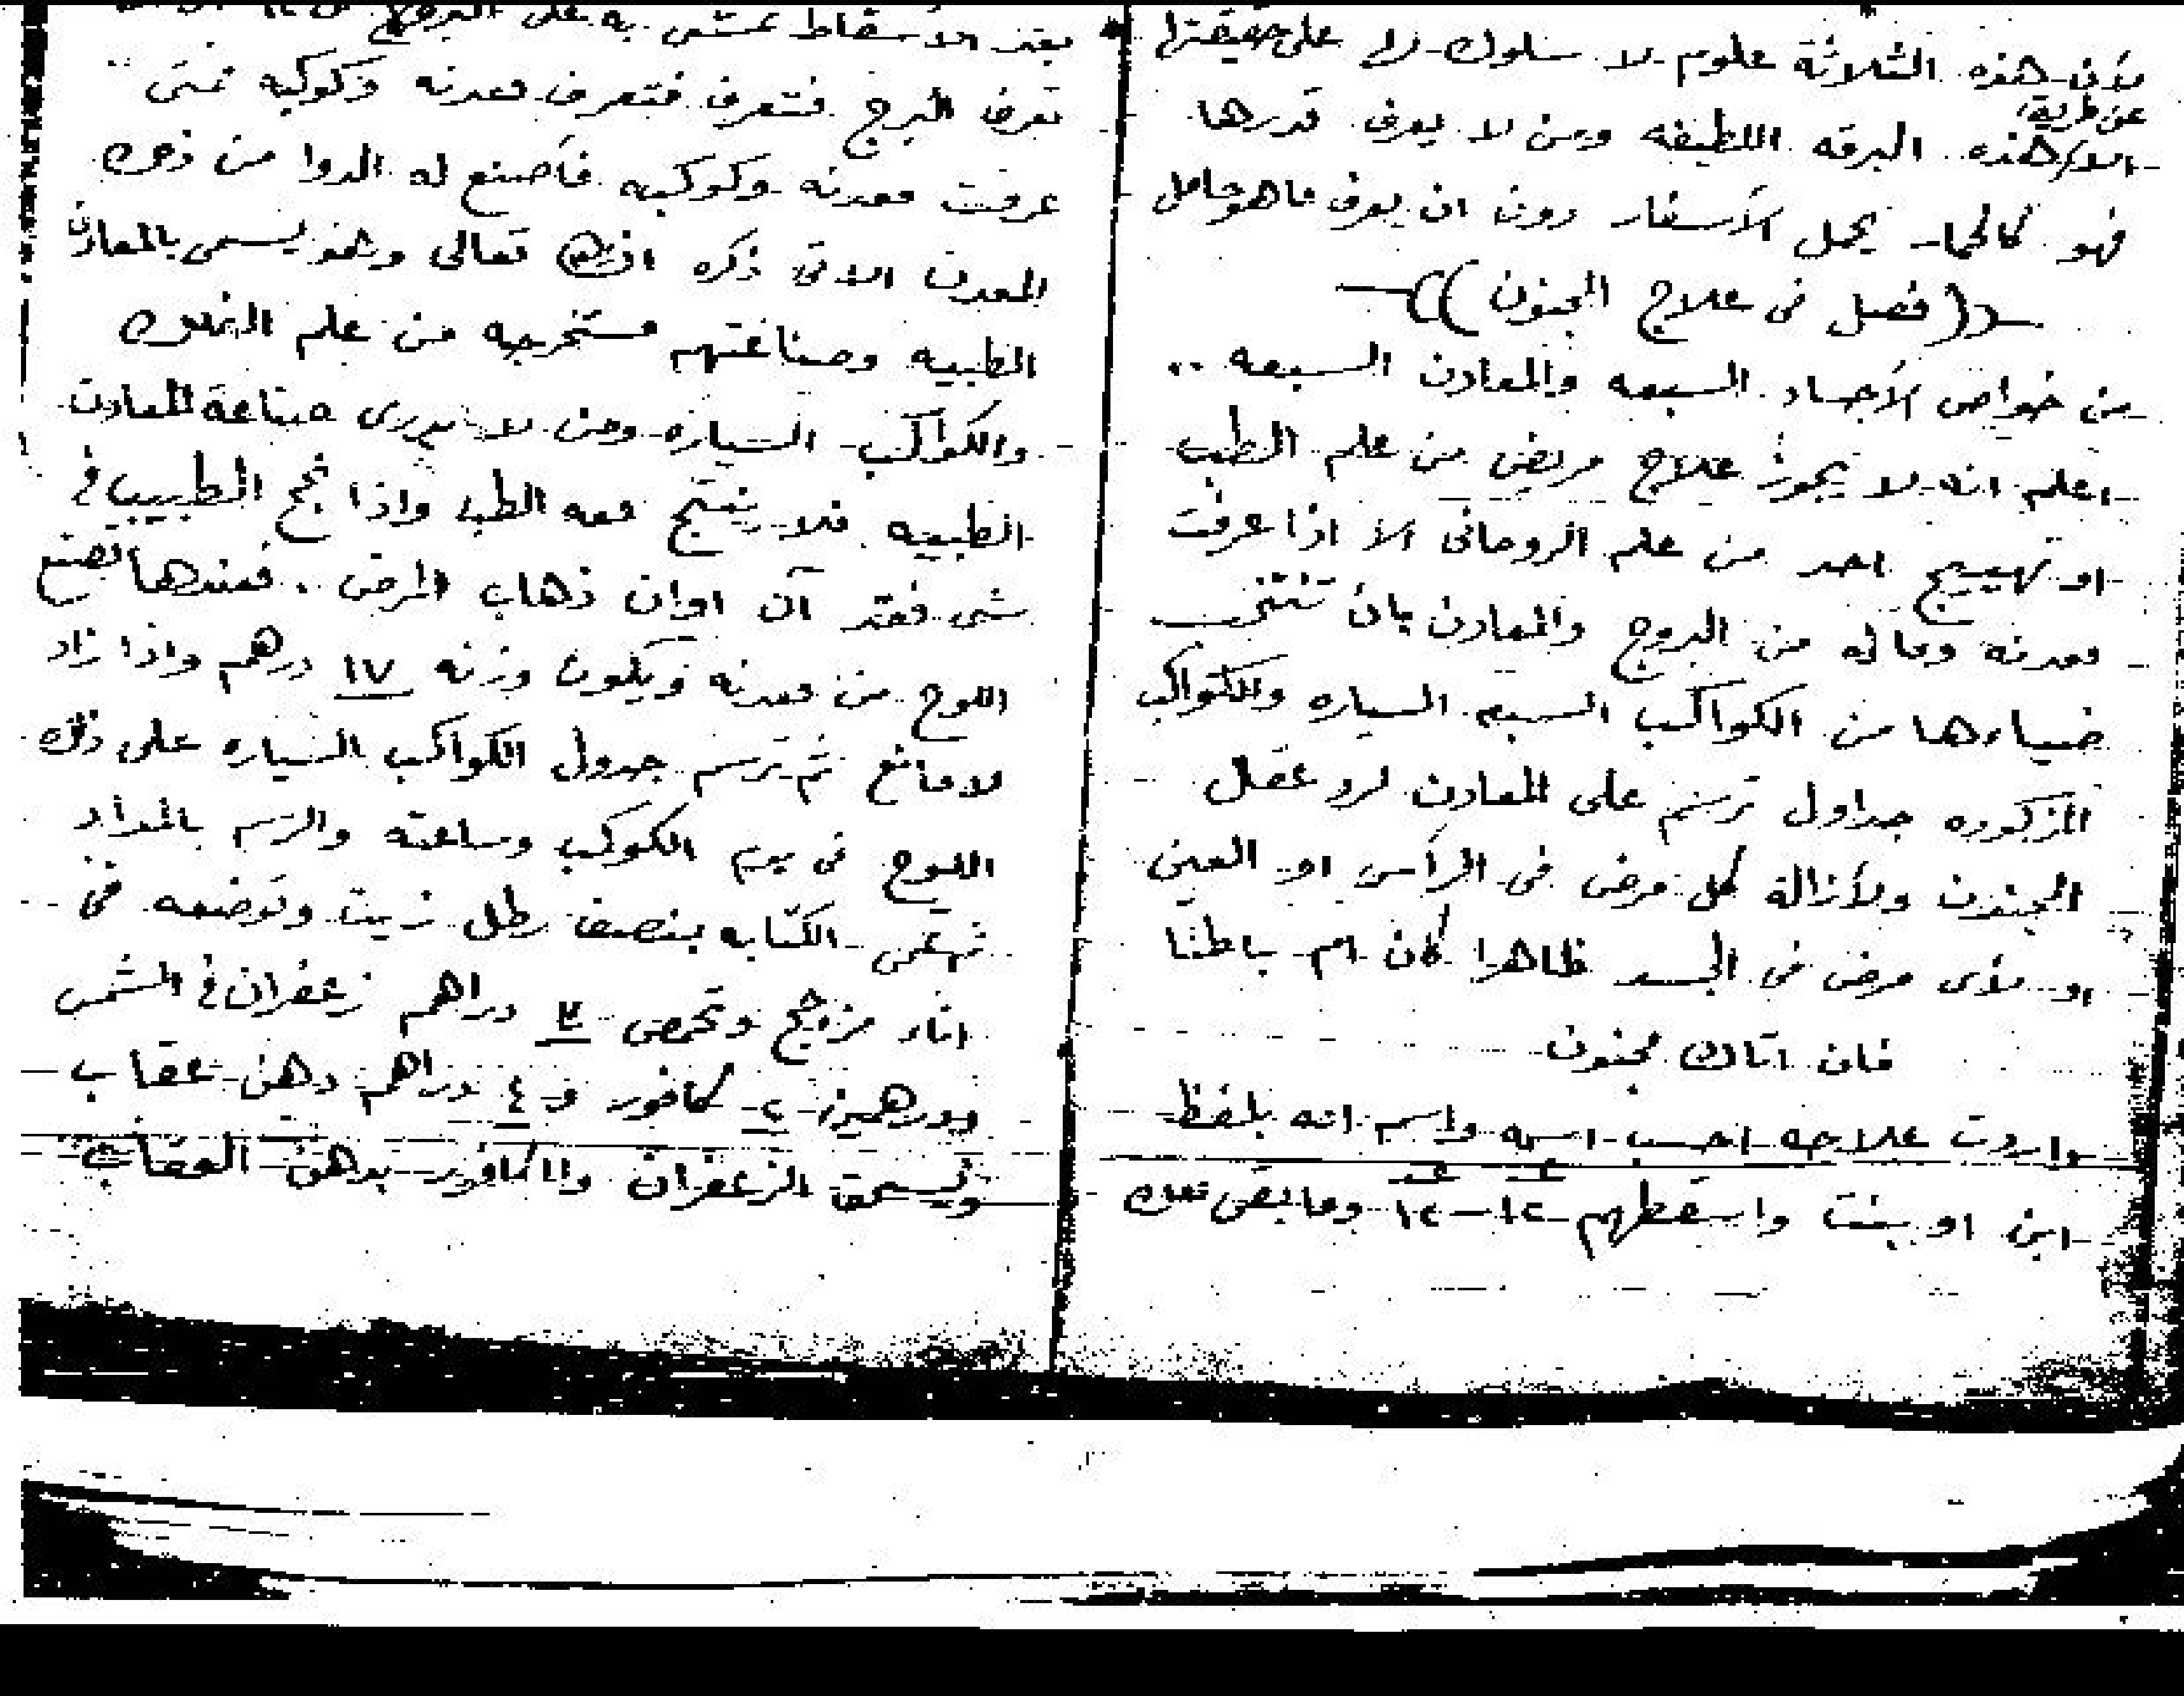 لأن هذه الثلاثة علوم لا سلوك لها على حقيقتها
عن طريق
الا هذه البرقه اللطيفه ومن لا يعرف قدرها
فهو كالحمار يحمل الأسفار دون ان يعرف ما هو حامل
((فصل فى علاج الجنون))
من خواص الأجساد السبعه والمعادن السبعه ..
اعلم انه لا يجوز علاج مريض من علم الطب
او تهييج احد من علم الروحانى الا اذا عرفت
معدنه وما له من البروج والمعادن بان تنتخب
ضياءها من الكواكب السبع السياره والكواكب
المذكوره جداول ترسم على المعادن لرد عقل
المجنون ولأزالة كل مرض فى الرأس او العين
او لأى مرض فى الجسد ظاهرا كان ام باطنا
فان اتاك مجنون
واردت علاجه احسب اسمه واسم امه بلفظ
ابن او بنت واسقطهم ١٢ - ١٢ وما بقى معك
بعد الأسقاط تمشى به على البروج
تعرف البرج فتعرف معدنه وكوكبه فمتى
عرفت معدنه وكوكبه فأصنع له الدوا من ذلك
المعدن الاتى ذكره تعالى وهو يسمى بالمعادن
الطبيه وصناعتهم مستخرجه من علم الفلك
والكواكب السياره ومن لا يدرى صناعة المعادن
الطبيه فلا ينتج معه الطب واذا نجح الطبيب فى
شى فقد آن اوان ذهاب المرض . فعندها تصنع
اللوح من معدنه ويكون وزنه ١٧ درهم واذا زاد
لا مانع ثم ترسم جدول الكواكب السياره على ذلك
اللوح فى يوم الكوكب وساعته والرسم بالمداد
ثم الكتابه بنصف رطل زيت وتوضعه فى
اناء مزجج دراهم زعفران فى الشمس
ودرهمين ٢ كافور و ٤ دراهم دهن عقاب
ويسحق الزعفران والكافور بدهن العقاب